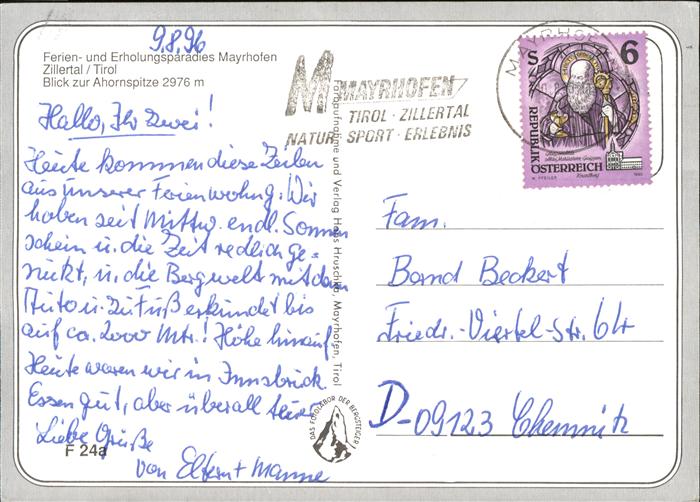 9.8.96
Ferien- und Erholungsparadies Mayrhofen
Zillertal / Tirol
Blick zur Ahornspitze 2976 m
Hallo, Ihr zwei!
Heute kommen diese Zeilen
aus unserer Ferienwohng. Wir
haben seit Mittw. endl. Sonnen
schein u. die Zeit redlich ge=
nützt, u. die Bergwelt mit dem
Auto u. zu Fuß erkundet bis
auf ca. 2000 Mtr.! Höhe hinauf.
Heute waren wir in Innsbruck.
Essen gut, aber überall teuer
Liebe Grüße
von Eltern +
F 24a
MAYRHOFEN
TIROL · ZILLERTAL
NATUR SPORT · ERLEBNIS
Fotoaufnahme und Verlag Hans Hruschka, Mayrhofen, Tirol
DAS FOTOLABOR DER BERGSTEIGER
MAYRHOFEN
S 6
REPUBLIK
ÖSTERREICH
Fam.
Bernd Beckert
Friedr.-Viertel-Str. 64
D-09123 Chemnitz